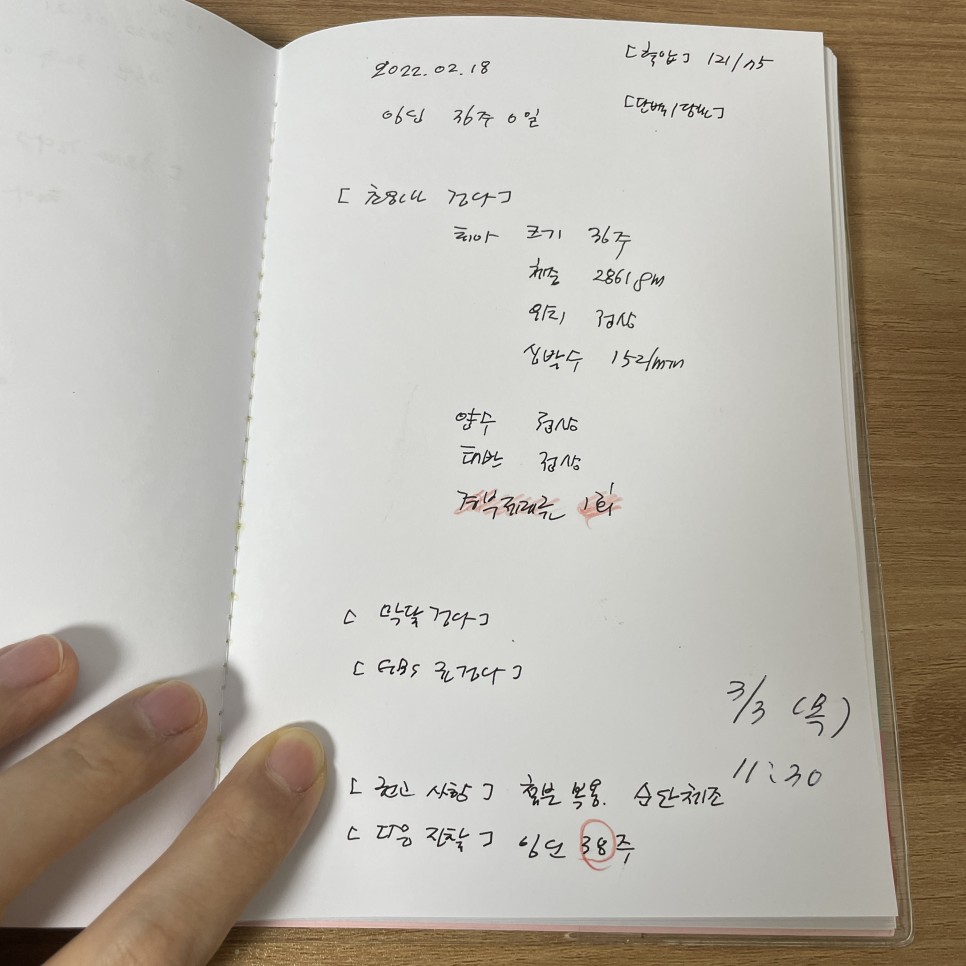 2022.02.18
[혈압] 121/75
임신 36주 0일
[단백/당뇨]
[초음파 검사]
태아 크기 36주
체중 2861gm
위치 정상
심박수 152/min
양수 정상
태반 정상
경부 제대륜 1회
[막달검사]
[GBS 균검사]
3/3 (목)
11:30
[권고 사항] 철분 복용. 순산체조
[다음 진찰] 임신 38주